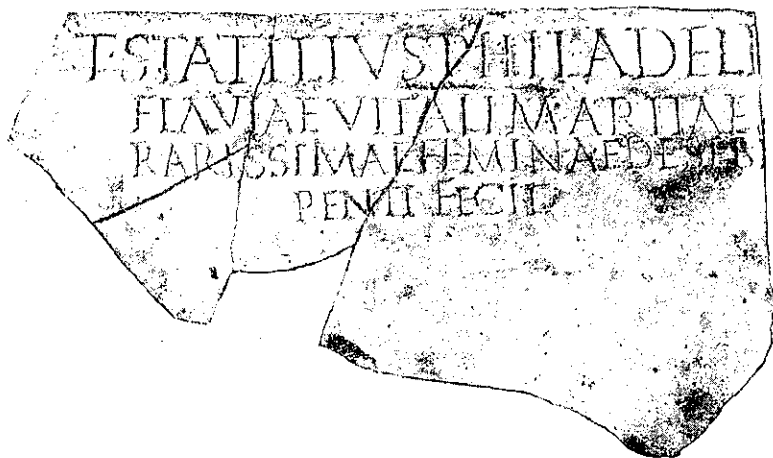 T·STATILIVS PHILADEL
FLAVIAE VITALI MARITAE
RARISSIMAE FEMINAE
PENTI FECIT